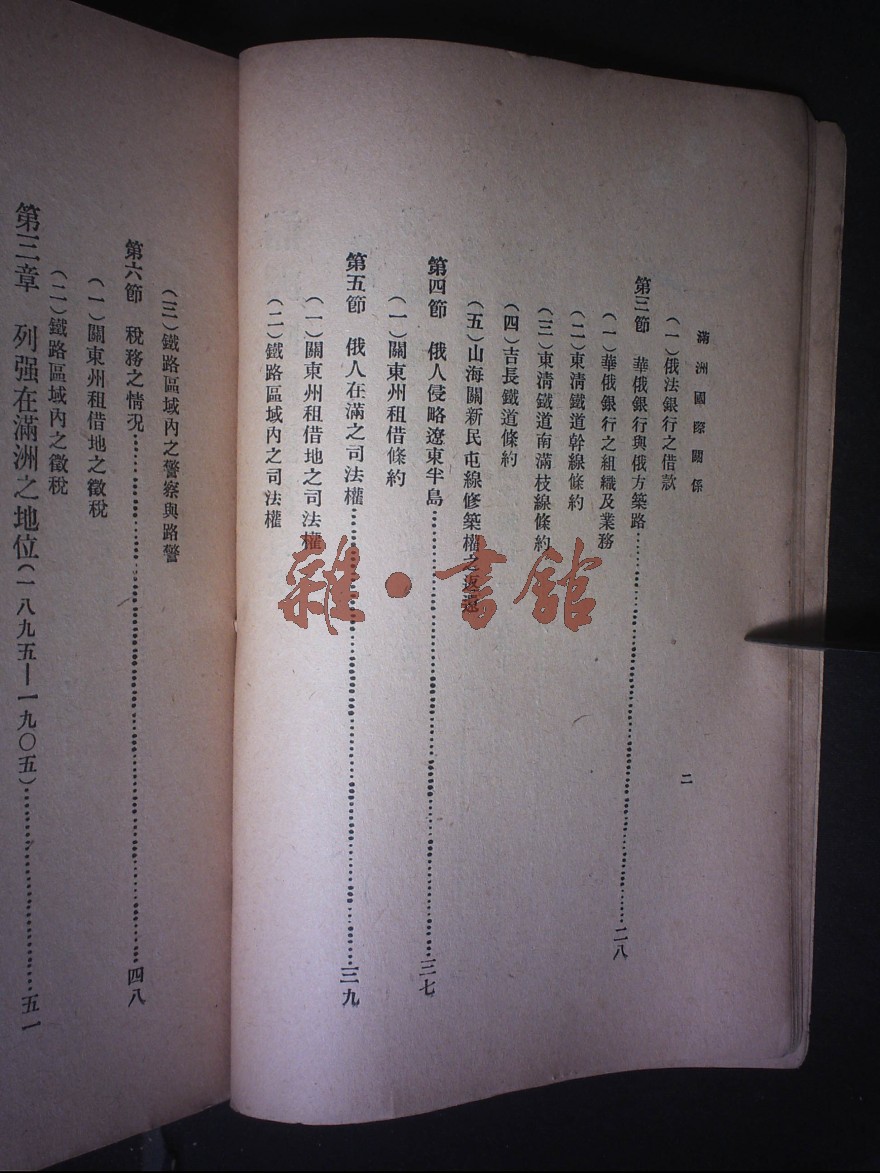 滿洲國際關係
二
(一)俄法銀行之借款
第三節 華俄銀行與俄方築路……二八
(一)華俄銀行之組織及業務
(二)東淸鐵道幹線條約
(三)東淸鐵道南滿枝線條約
(四)吉長鐵道條約
(五)山海關新民屯線修築權之返還
第四節 俄人侵略遼東半島……三七
(一)關東州租借條約
第五節 俄人在滿之司法權……三九
(一)關東州租借地之司法權
(二)鐵路區域內之司法權
(三)鐵路區域內之警察與路警
第六節 稅務之情況……四八
(一)關東州租借地之徵稅
(二)鐵路區域內之徵稅
第三章 列强在滿洲之地位(一八九五—一九〇五)……五一
雜·書館